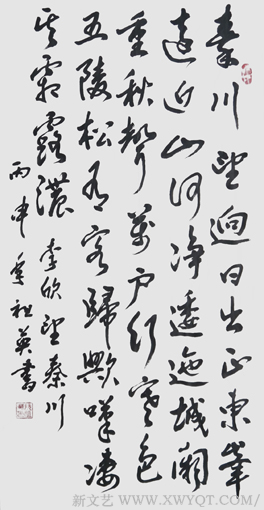 秦川望迥日出正東峯
遠近山河净逶迤城闕
重秋聲萬户竹寒色
五陵松有客歸歟嘆凄
其霜露濃 李欣望秦川
丙申年祖英書
新文艺/WWW.XWYQT.COM/